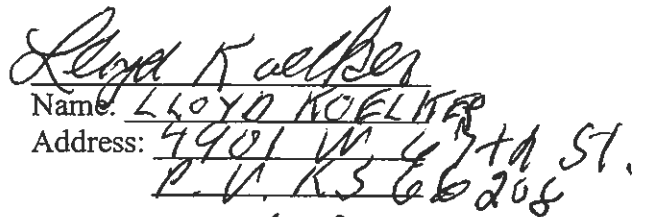 Lloyd Koelker
Name: LLOYD KOELKER
Address: 4401 W 67th St.
P.V. KS 66208